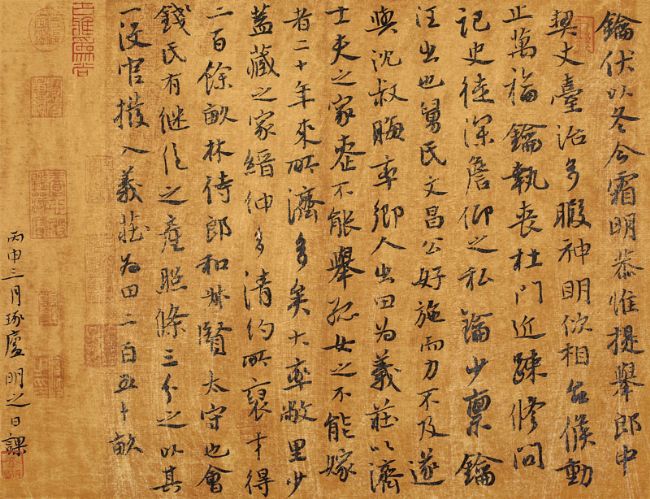 鑰伏以冬令霜明恭惟提舉郎中
契丈臺治多暇神明攸相台候動
止萬福鑰執喪杜門近疎修問
記史徒深詹仰之私鑰少禀鑰
汪出也舅氏文昌公好施而力不及遂
與沈叔晦率鄉人出田為義莊以濟
士夫之家喪不能舉孤女之不能嫁
者二十年來所濟多矣大率敝里少
蓋藏之家縉紳多清約所裒才得
二百餘畝林侍郎和叔賢太守也會
錢氏有継絕之產照條三分之以其
一没官撥入義莊為田二百五十畝
丙申三月琢廬明之日課